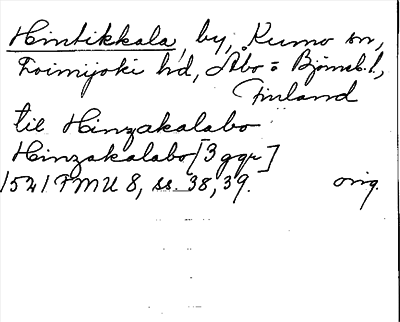 Hintikkala, by, Kumo sn,
Loimijoki hd, Åbo o Björneb. l.,
Finland
til Hinzakalabo
Hinzakalabo [3 ggr]
1521 FMU 8, ss. 38, 39. orig.